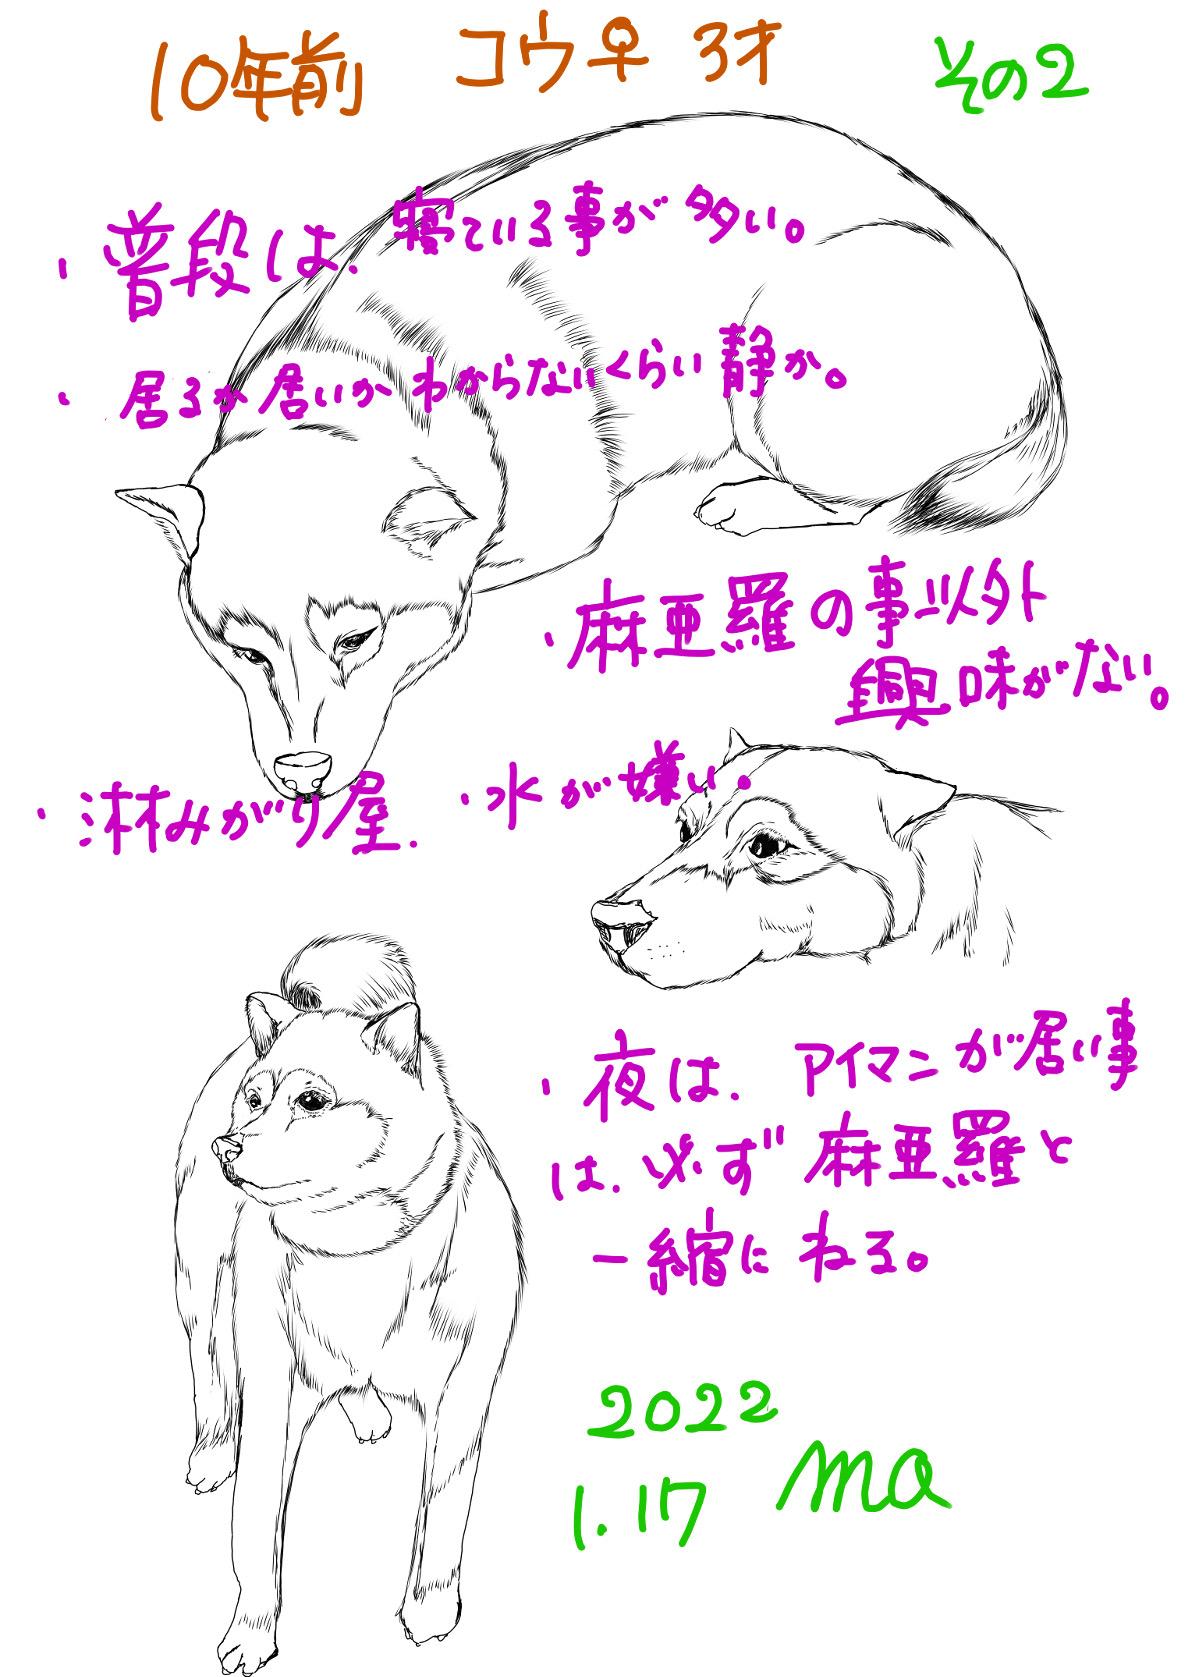 10年前 コウ♀ 3才 その2
・普段は、寝ている事が多い。
・居るか居いかわからないくらい静か。
・麻亜羅の事以外
興味がない。
・水が嫌い。
・夜は、アイマンが居い事
は、必ず麻亜羅と
一縮にねる。
2022
1.17 ma